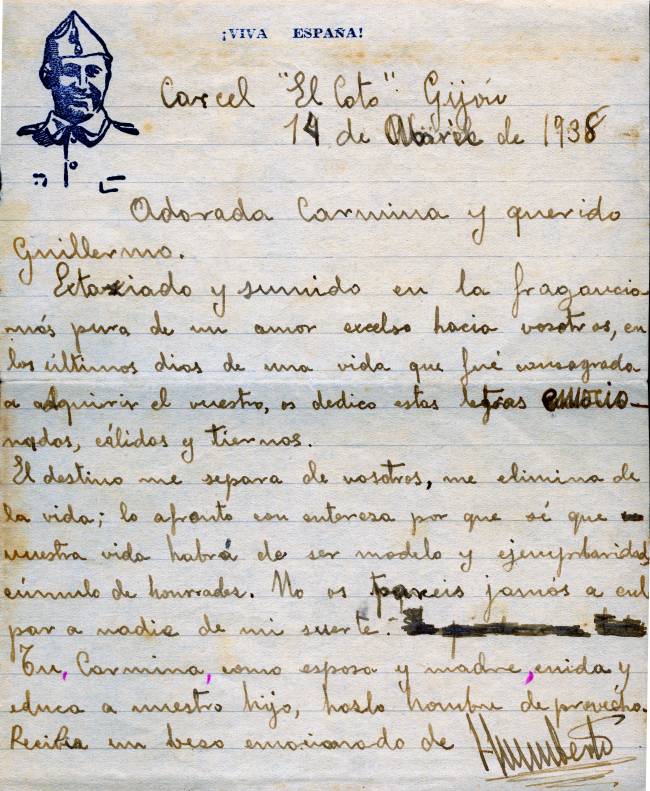 ¡VIVA ESPAÑA!
Carcel "El Coto" Gijón
14 de de 1938
Adorada Carmina y querido
Guillermo.
Extaxiado y sumido en la fragancia
más pura de un amor excelso hacia vosotros, en
los últimos dias de una vida que fué consagrada
a adquirir el vuestro, os dedico estas letras emocio-
nadas, cálidas y tiernas.
El destino me separa de vosotros, me elimina de
la vida; lo afronto con entereza por que sé que
vuestra vida habrá de ser modelo y ejemplaridad,
cúmulo de honrrades. No os pareis jamás a cul
par a nadie de mi suerte.
Tu, Carmina, como esposa y madre, cuida y
educa a nuestro hijo, hazlo hombre de provecho.
Recibir un beso emocionado de Humberto